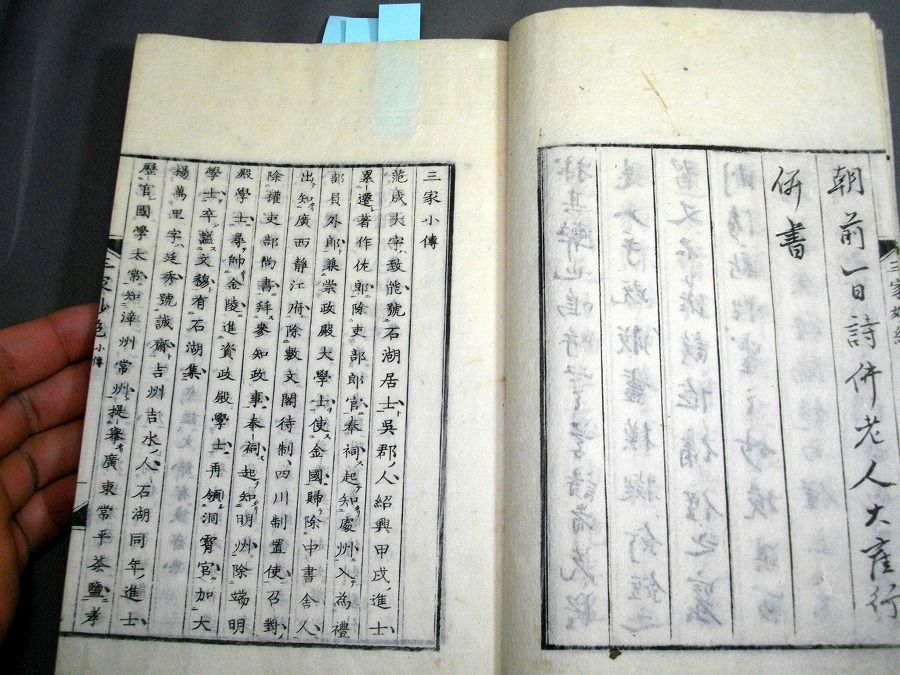 朝前一日詩併老人大窪行
併書
三家小傳
范成大字致能號石湖居士吳郡人紹興甲戌進士
累遷著作佐郎除吏部郎官奉祠起知處州入為禮
部員外郎兼崇政殿大學士使金國歸除中書舍人
出知廣西靜江府除敷文閣待制四川制置使召對
除權吏部尚書拜參知政事奉祠起知明州除端明
殿學士尋帥金陵進資政殿學士再領洞霄宮加大
學士卒謚文穆有石湖集
楊萬里字廷秀號誠齋吉州吉水人石湖同年進士
歷官國學太常知漳州常州提舉廣東常平茶鹽孝
小傳